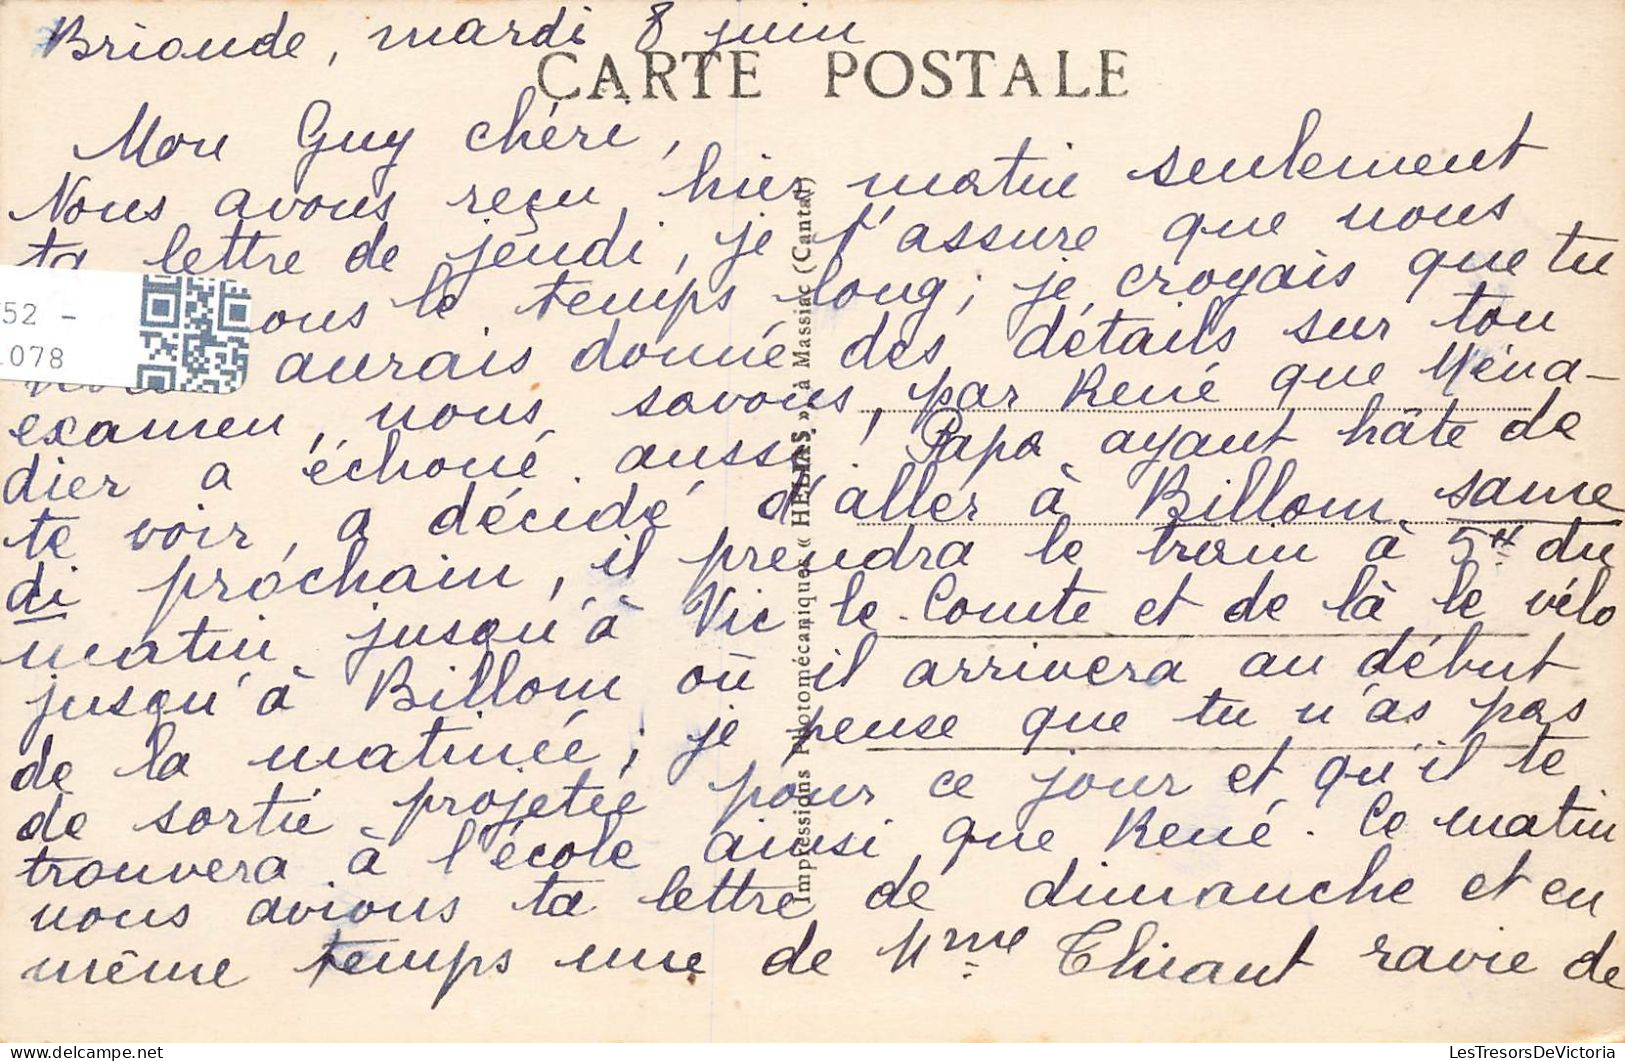 Brioude, mardi 8 juin
CARTE POSTALE
Mon Guy chéri,
Nous avons reçu hier matin seulement
ta lettre de jeudi, je t'assure que nous
ous le temps long; je croyais que tu
aurais donné des détails sur ton
examen, nous savons, par René que Ména-
dier a échoué aussi! Papa ayant hâte de
te voir, a décidé d'aller à Billom same
di prochain, il prendra le train à 5H du
matin jusqu'à Vic le Comte et de là le vélo
jusqu'à Billom où il arrivera au début
de la matinée; je pense que tu n'as pas
de sortie projetée pour ce jour et qu'il te
trouvera à l'école ainsi que René. Ce matin
nous avions ta lettre de dimanche et en
même temps une de Mme Thiant ravie de
Impressions Photomécaniques « HELIAS » à Massiac (Cantal)
52 -
1078
LesTresorsDeVictoria.com